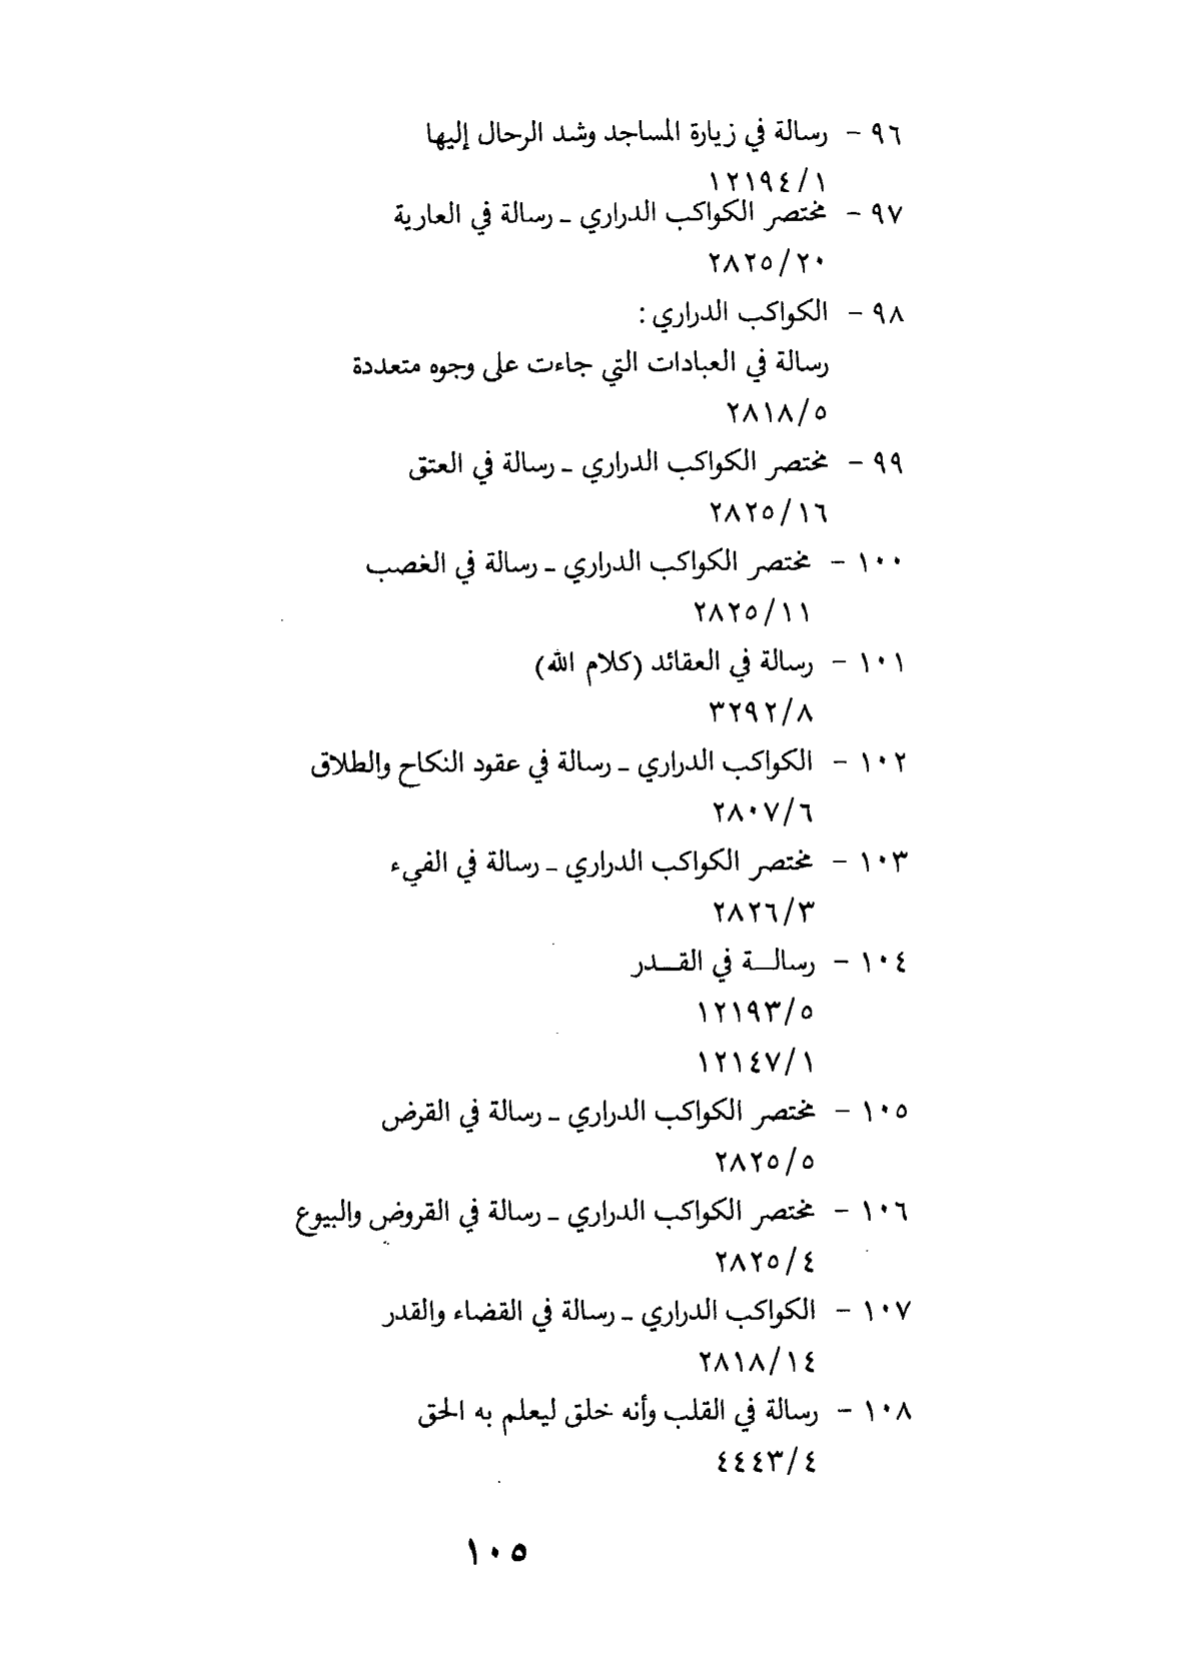 ٩٦ - رسالة في زيارة المساجد وشد الرحال إليها
١٢١٩٤/١
٩٧ - مختصر الكواكب الدراري - رسالة في العارية
٢٨٢٥/٢٠
٩٨ - الكواكب الدراري :
رسالة في العبادات التي جاءت على وجوه متعددة
٢٨١٨/٥
٩٩ - مختصر الكواكب الدراري - رسالة في العتق
٢٨٢٥/١٦
١٠٠ - مختصر الكواكب الدراري - رسالة في الغصب
٢٨٢٥/١١
١٠١ - رسالة في العقائد (كلام الله)
٣٢٩٢/٨
١٠٢ - الكواكب الدراري - رسالة في عقود النكاح والطلاق
٢٨٠٧/٦
١٠٣ - مختصر الكواكب الدراري - رسالة في الفيء
٢٨٢٦/٣
١٠٤ - رسالــة في القــدر
١٢١٩٣/٥
١٢١٤٧/١
١٠٥ - مختصر الكواكب الدراري - رسالة في القرض
٢٨٢٥/٥
١٠٦ - مختصر الكواكب الدراري - رسالة في القروض والبيوع
٢٨٢٥/٤
١٠٧ - الكواكب الدراري - رسالة في القضاء والقدر
٢٨١٨/١٤
١٠٨ - رسالة في القلب وأنه خلق ليعلم به الحق
٤٤٤٣/٤
١٠٥